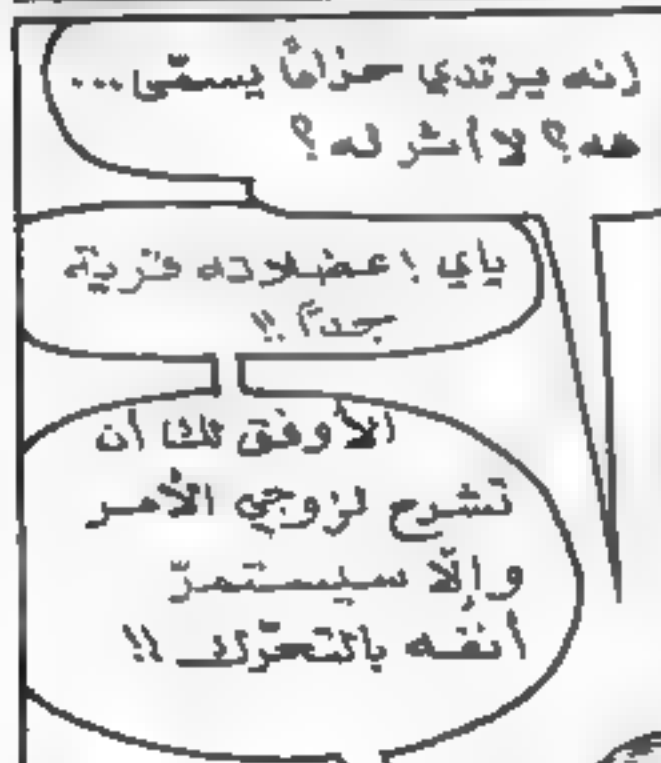 إنه يرتدي حزاماً يسمّى...
هه؟ لا أثر له؟
ياي! عضلاته قويّة
جداً!!
الأوفق لك أن
تشرح لزوجي الأمر
وإلّا سيستمرّ
أنفه بالتحرّك!!